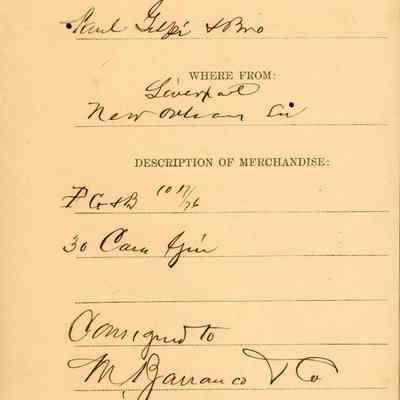 Paul Gelpi & Bro
WHERE FROM:
Liverpool
New Orleans
DESCRIPTION OF MERCHANDISE:
P G & B 10 17/76
30 Cases Gin
Consigned to
M, Barranco & Co